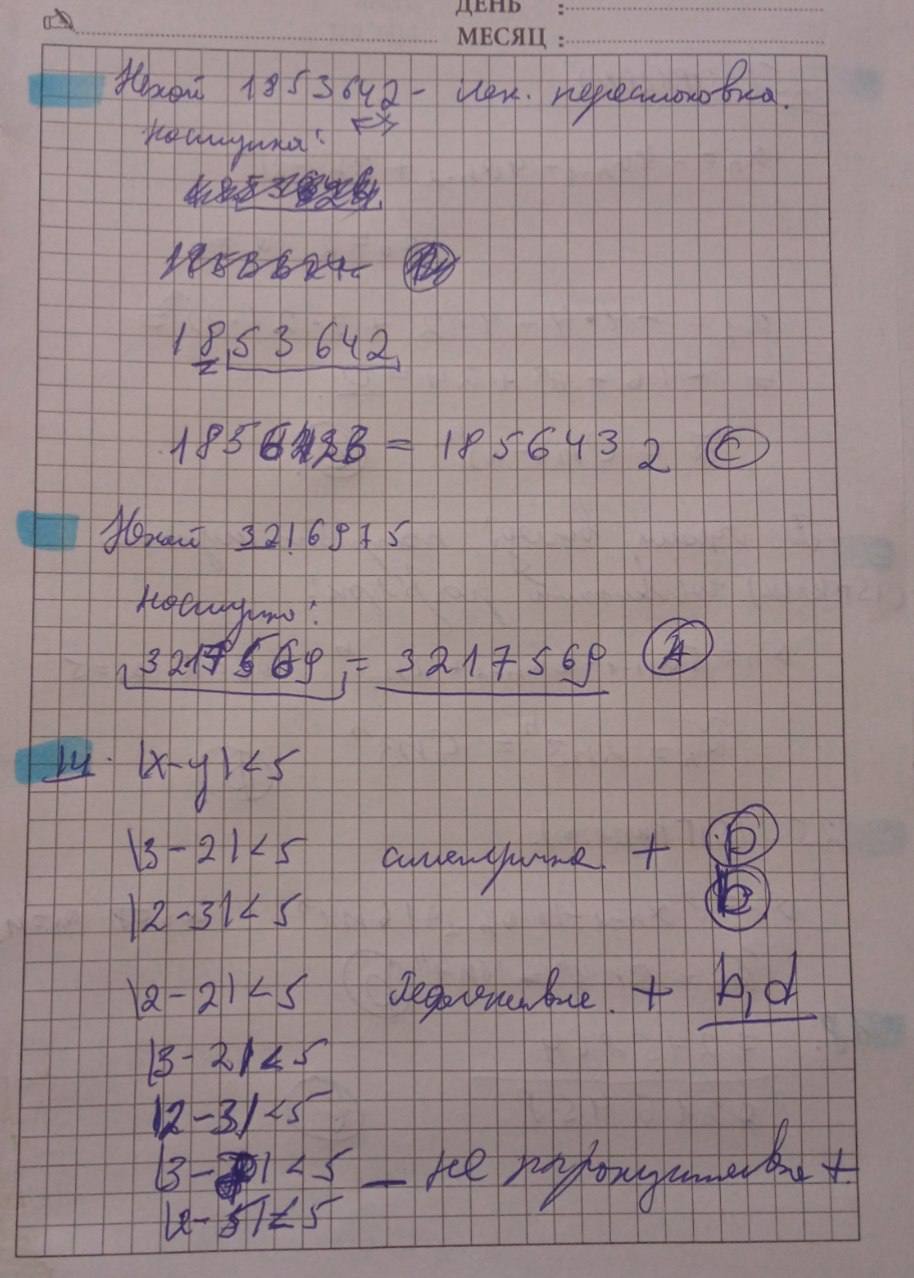 ДЕНЬ :
МЕСЯЦ :
Нехай 1853642 - лек. перестановка.
наступна:
1853642
1856423 = 1856432 C
Нехай 3216975
наступна:
3217569 = 3217569 A
14. |x-y|<5
|3-2|<5 симетричне + b
|2-3|<5 b
|2-2|<5 Рефлексивне. + b, d
|3-2|<5
|2-3|<5
|3- |<5 — не
|2-5|<5